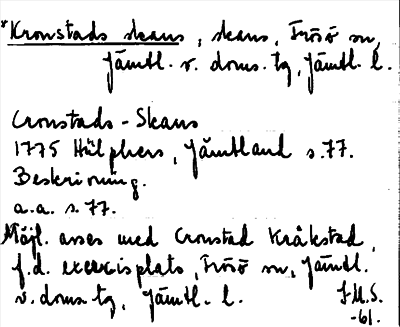 *Kronstads skans, skans, Frösö sn,
Jämtl. v. doms.tg, Jämtl. l.
Cronstads-Skans
1775 Hülphers, Jämtland s.77.
Beskrivning.
a.a. s.77.
Möjl. avses med Cronstad Kråkstad,
f.d. exercisplats, Frösö sn, Jämtl.
v. doms.tg, Jämtl. l.
J.M.S.
-61.